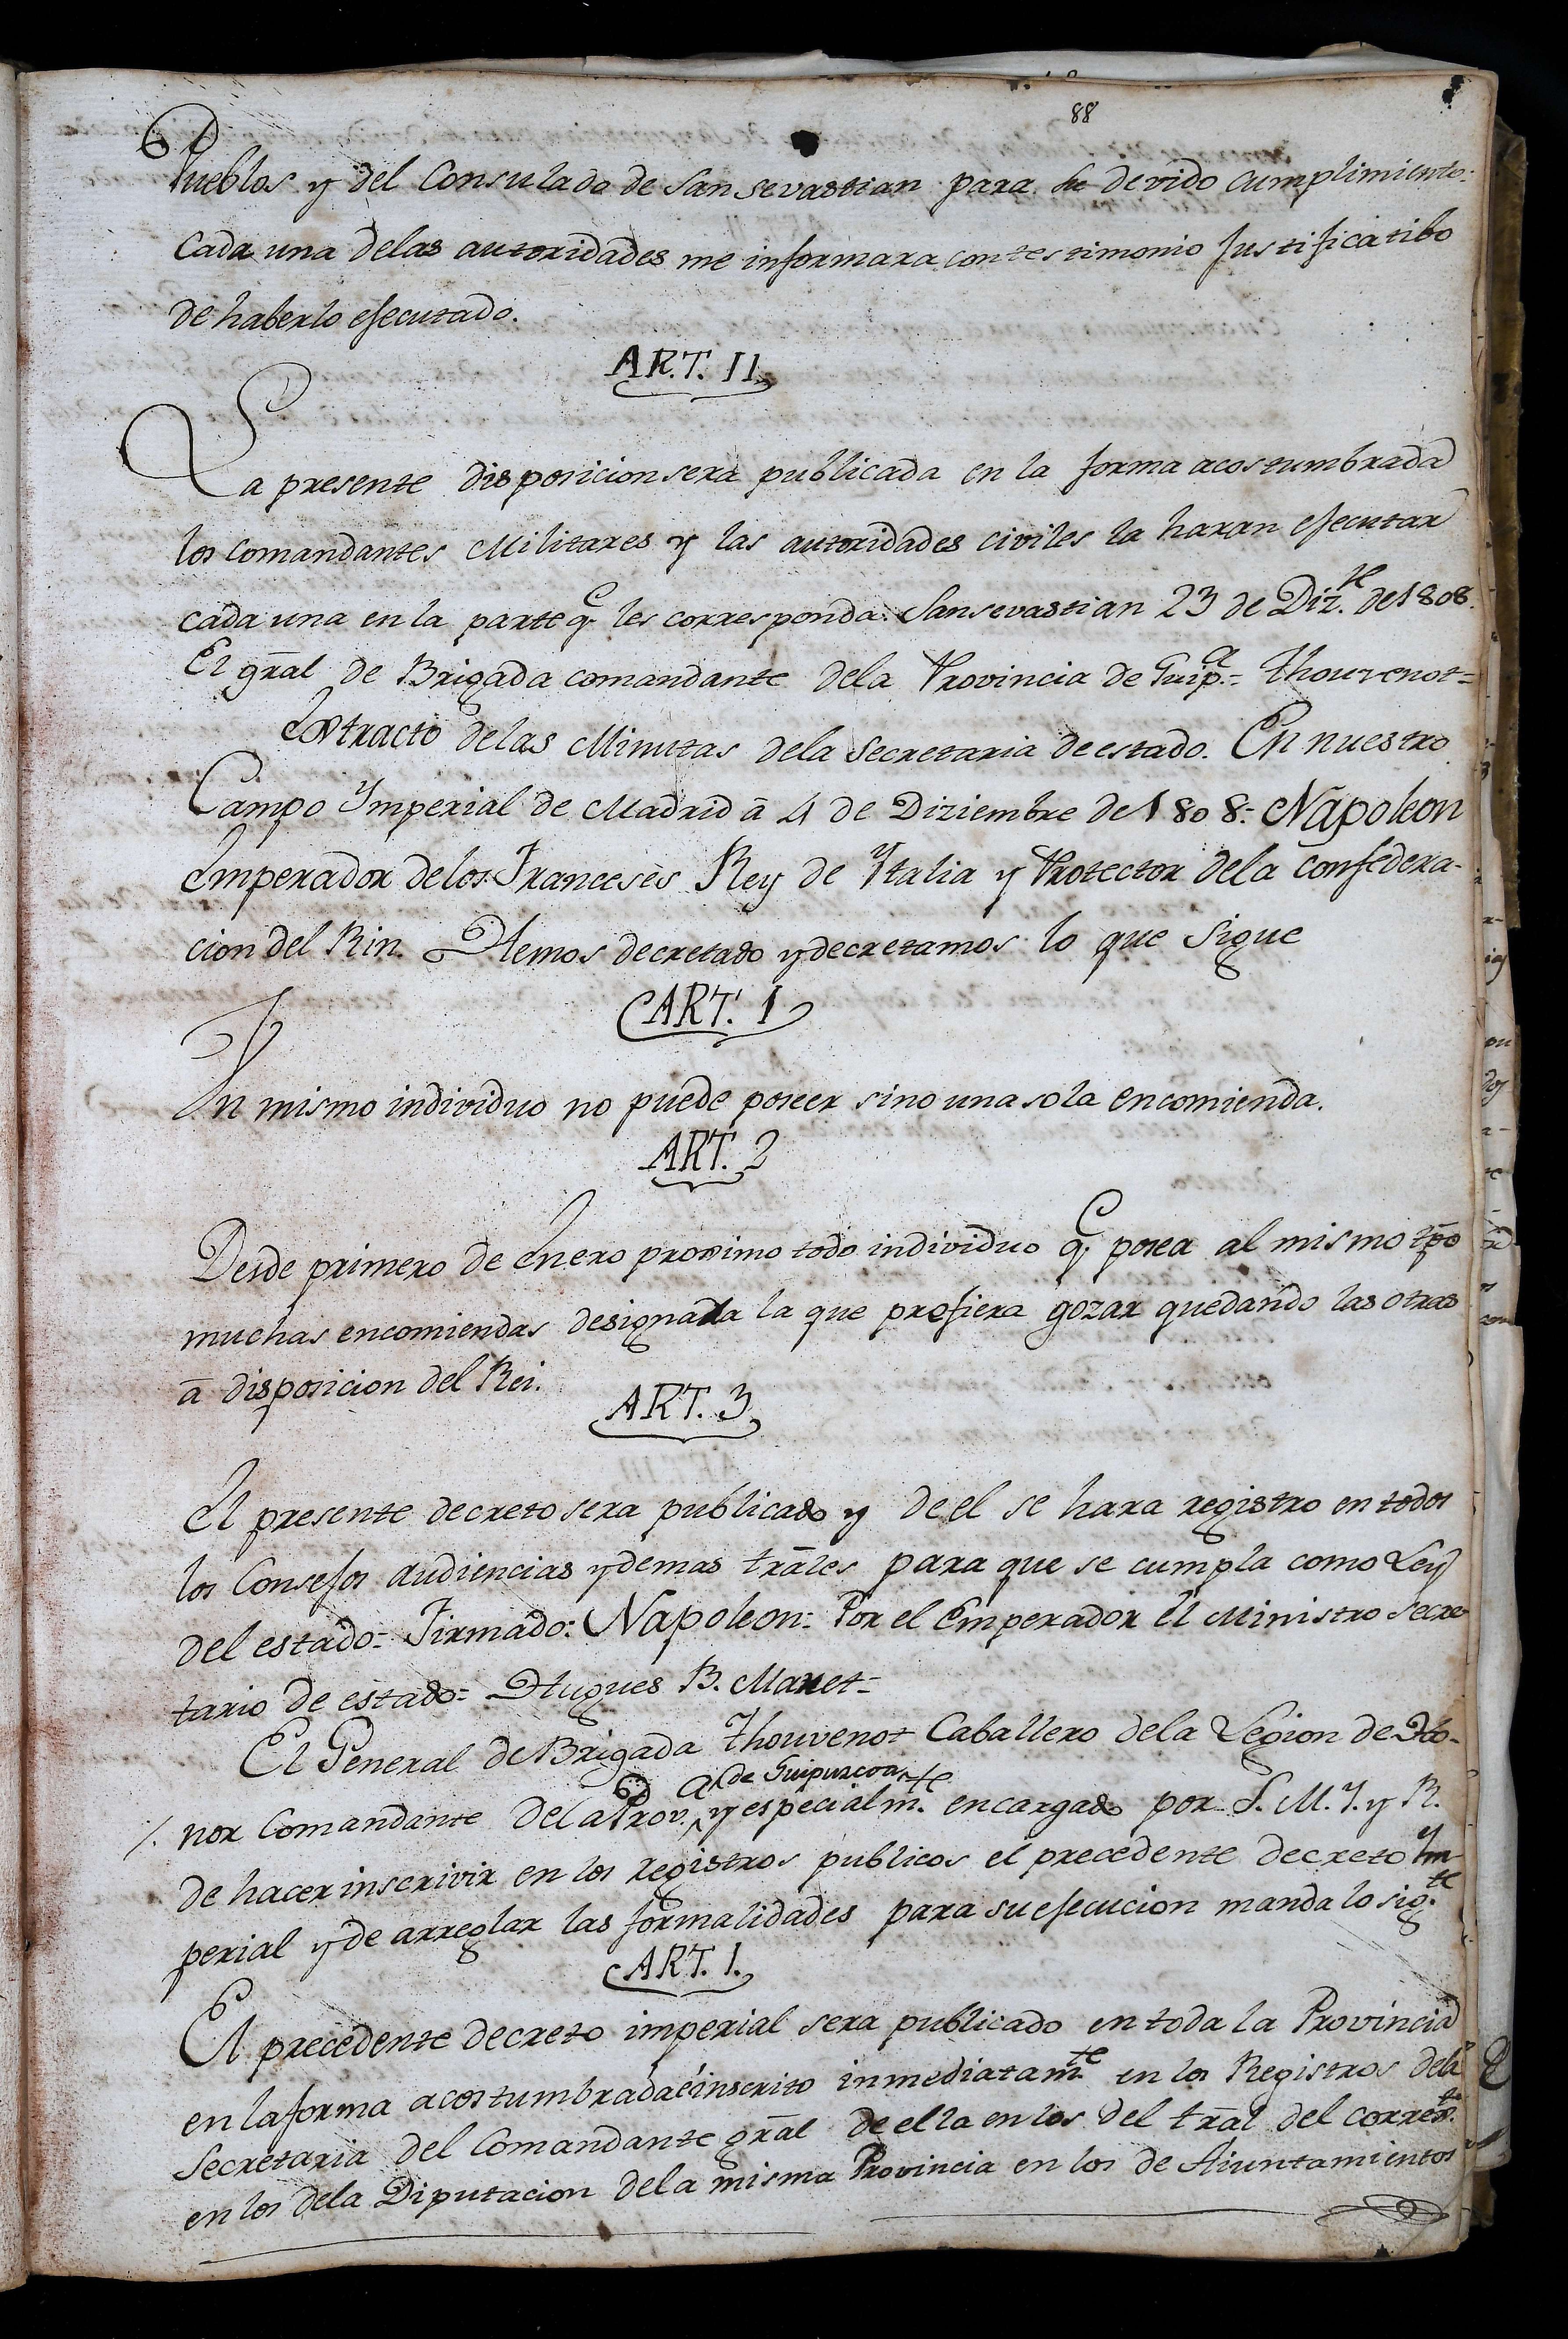 88
Pueblos y del Consulado de San sevastian para su devido cumplimiento:
Cada una delas autoridades me informara con testimonio Justificatibo
de haberlo efecutado.
ART. II
La presente disposicion sera publicada en la forma acostumbrada
los comandantes Militares y las autoridades civiles la haran efecutar
cada una en la parte q.e les corresponda. San sevastian 23 de Diz.re de 1808.
El gral de Brigada comandante dela Provincia de Guip.a = Thouvenot =
Extracto delas Minutas dela Secretaria de estado. En nuestro
Campo Ymperial de Madrid â 4 de Diziembre de 1808: Napoleon
Emperador delos Franceses Rey de Ytalia y Protector dela confedera-
cion del Rin. Hemos decretado y decretamos lo que Sigue
ART. 1
Un mismo individuo no puede poseer sino una sola encomienda.
ART. 2
Desde primero de Enero proximo todo individuo q.e posea al mismo tpo
muchas encomiendas designara la que prefiera gozar quedando las otras
â disposicion del Rei.
ART. 3
El presente decreto sera publicado y de el se hara registro en todos
los Consejos audiencias y demas trales para que se cumpla como Ley
del estado = Firmado: Napoleon = Por el Emperador El Ministro Secre
tario de estado = Hugues B. Maret =
El General de Brigada Thouvenot Caballero dela Legion de Ho-
/. nor Comandante dela Prov.a de Guipuzcoa y especialm.te encargado por S. M. Y. y R.
de hacer inscrivir en los registros publicos el precedente decreto Ym
perial y de arreglar las formalidades para su efecucion manda lo sig.te
ART. 1.
El precedente decreto imperial sera publicado en toda la Provincia
en la forma acostumbrada é inscrito inmediatam.te en los Registros dela
Secretaria del Comandante gral de ella en los del tral del corres.to
en los dela Diputacion dela misma Provincia en los de Aiuntamientos